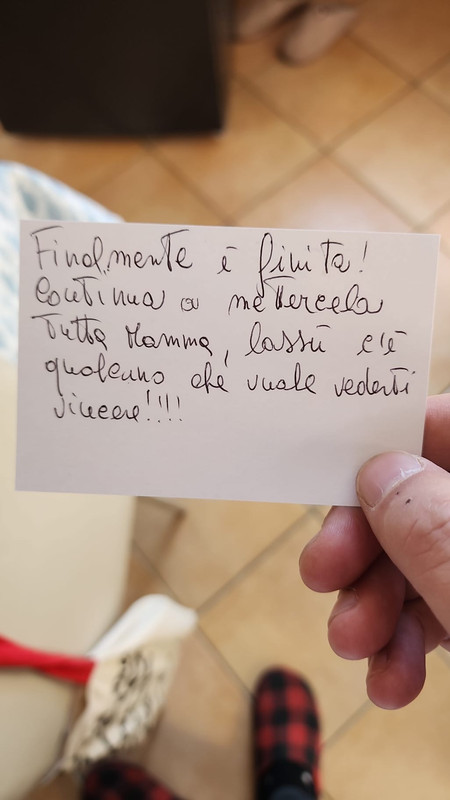 Finalmente è finita!
Continua a mettercela
tutta Mamma, lassù c'è
qualcuno che vuole vederti
vincere!!!!